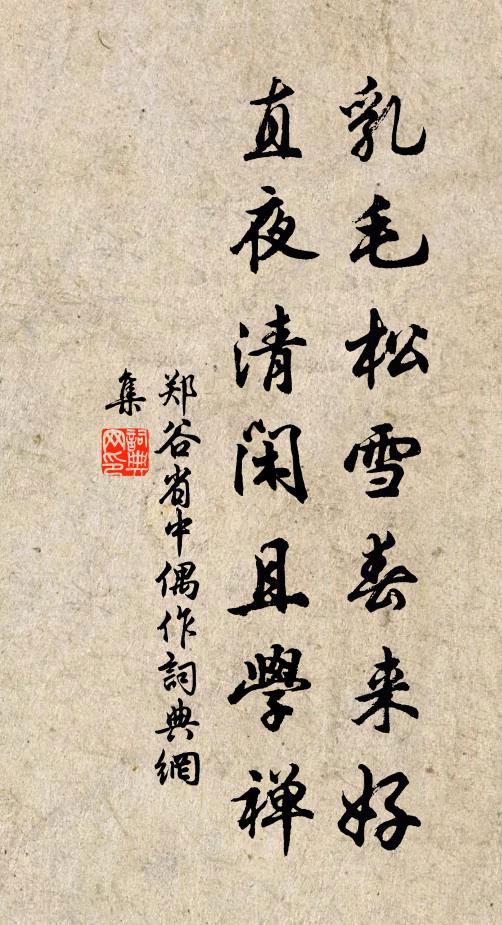 乳毛松雪春来好
直夜清闲且學禅
郑谷省中偶作詞典網
集
詞典
网印